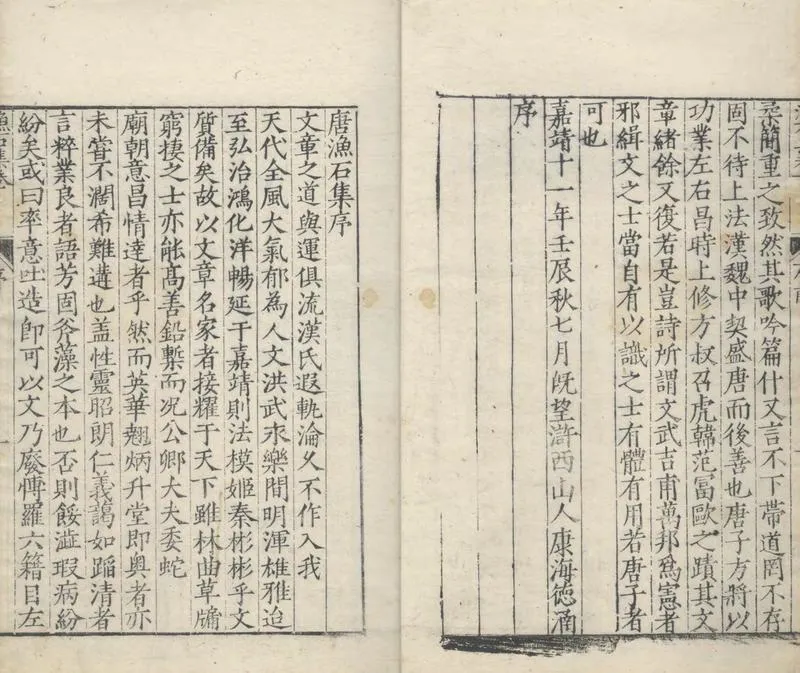 柔簡重之致然其歌吟篇什又言不下帶道罔不存
固不待上法漢魏中契盛唐而後善也唐子方將以
功業左右昌時上修方叔召虎韓范富歐之蹟其文
章緒餘又復若是豈詩所謂文武吉甫萬邦爲憲者
邪緝文之士當自有以識之士有體有用若唐子者
可也
嘉靖十一年壬辰秋七月旣望滸西山人康海德涵
序
唐漁石集序
文章之道與運俱流漢氏遐軌淪乆不作入我
天代全風大氣郁為人文洪武永樂間明渾雄雅迨
至弘治鴻化洋暢延于嘉靖則法模姬秦彬彬乎文
質備矣故以文章名家者接耀于天下雖林曲草牖
窮棲之士亦能高善鉛槧而况公卿大夫委蛇
廟朝意昌情達者乎然而英華翹炳升堂即奥者亦
未嘗不濶希難遘也盖性靈昭朗仁義藹如蹈清者
言粹業良者語芳固斧藻之本也否則餒澁瑕病紛
紛矣或曰率意吐造卽可以文乃廢慱羅六籍目左